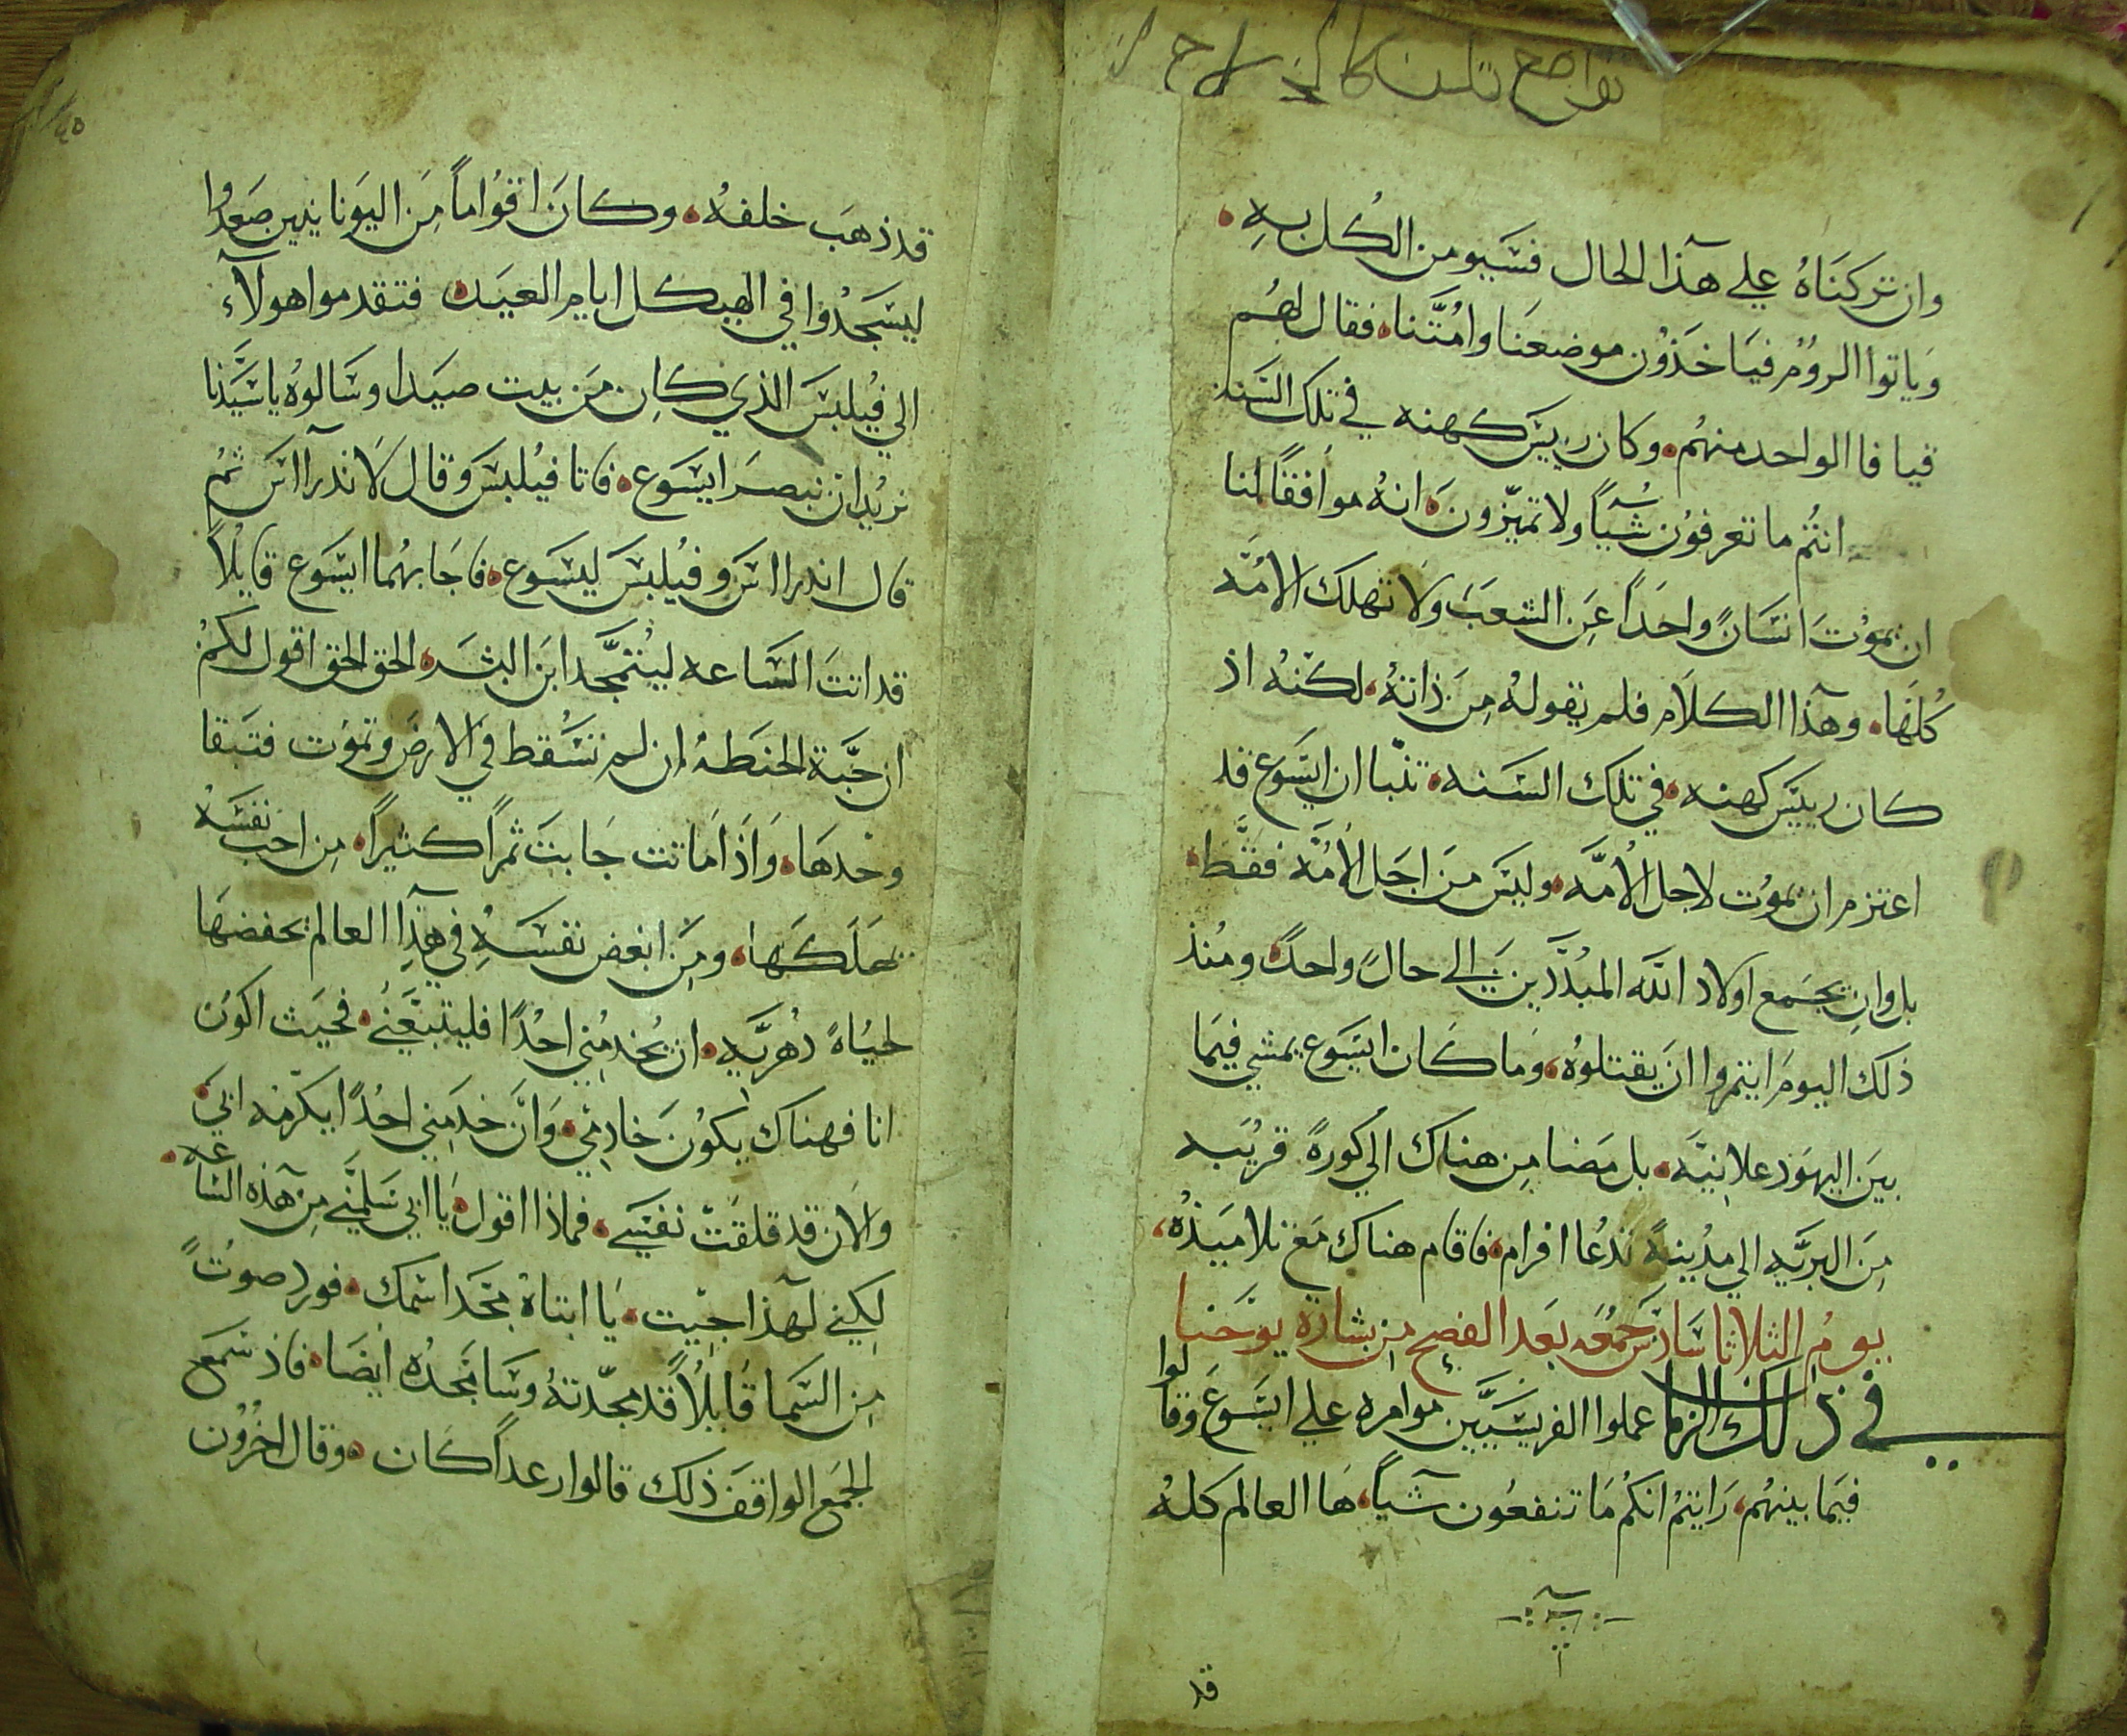 تواضع تكن كالنجم لاح
وان تركناهُ علي هذا الحال فسَيومن الكُل بهِ
وَياتوا الروُمْ فيَاخذوُن موضعَنا وامُتَّنا فقال لهُم
قيافا الواحد منهُم وكان رييسَ كهنه في تلك السَنه
انتُم ما تعرفوُن شيَاً ولا تميّزون انهُ موافقاً لنا
ان يموُتَ انسَانٍ واحَداً عَن الشعبَ ولَا تهلك الامُّه
كُلهَا وهذا الكلَام فلم يقولهُ مِنَ ذاتهُ لكنهُ اذ
كان رييسَ كهنه في تلك السَنه تنبّا ان ايسَوع قد
اعتزم ان يموُت لاجل الامَّه وليسَ منَ اجَل الامَّه فقَط
بل وان يجمَع اولاد اللَه المبُدَّدين الي حالٍ واحدٍ ومُنذ
ذلك اليومَ ايتمروا انَ يقتلوُه وَما كَان ايسَوع يمشي فيمَا
بينَ اليهوَد علانيَّه بل مَضا مِن هناك الي كورةٍ قريبَه
مِنَ البريَّه الي مدُينهٍ تدعُا افرام فاقام هناك مَعَ تلاميَذُه
يومُ الثلاثا سَادسَ جمُعَه بعَد الفصح مِن بشارة يوحَنا
في ذلك الزمان عملوا الفريسَيَّين موامره علي ايسَوعَ وقالوا
فيَما بينهُم رَايتمْ انكمُ مَا تنفعُون شيَاً هَا العالم كلهُ
قد
٤٥
قد ذهَبَ خلفهُ وكانَ اقوُاماً مِنَ اليوَنانيين صَعدوُا
ليسَجَدْوُا في الهيكل ايام العيَد فتقدموا هولآء
الي فيُلبسَ الذي كان مَن بيت صيَدا وسَالوهُ يا سَيَّدنا
نريُد ان نبصرَ ايسَوع فاتا فيُلبسَ وقال لَاندراسَ ثمُ
قال اندراسَ وفيُلبسَ ليسَوع فاجَابهُما ايسَوع قايلاً
قد اتتَ السَاعه ليتُمجَّد ابنَ البشَر الحق الحق اقول لكمُ
ان حَبَّة الحنطهُ ان لم تسَقط في الارضَ وتموُت فتَبقا
وحْدهَا وَاذَا مَاتت جَابتَ ثمراً كثيراً مِن احب نفسَهُ
يهَلكهَا ومِنَ ابغض نفسَهُ في هذا العالم يحفضهَا
لحيُاةٍ دهُريَّه ان يخُدمُني احدُاً فليتبعَني فحيَث اكوُن
انا فهناك يكوُنَ خادمُي وَانَّ خدَمَني احُداً يكرّمه ابيَ
والَان قد قلقتَ نفسَي فماذا اقول يَا ابي سَلمَّني مِن هَذه السَاعه
لكِني لَهذا جيُت يَا ابتاهُ مجَّد اسَمك فورد صوتٌ
مِن السَما قايلُاً قد مجّدتهُ وسَامجَدُه ايضَا فاذ سَمعَ
الجمَع الواقفَ ذلك قالوا رعداً كَان وقال اخرُوُن